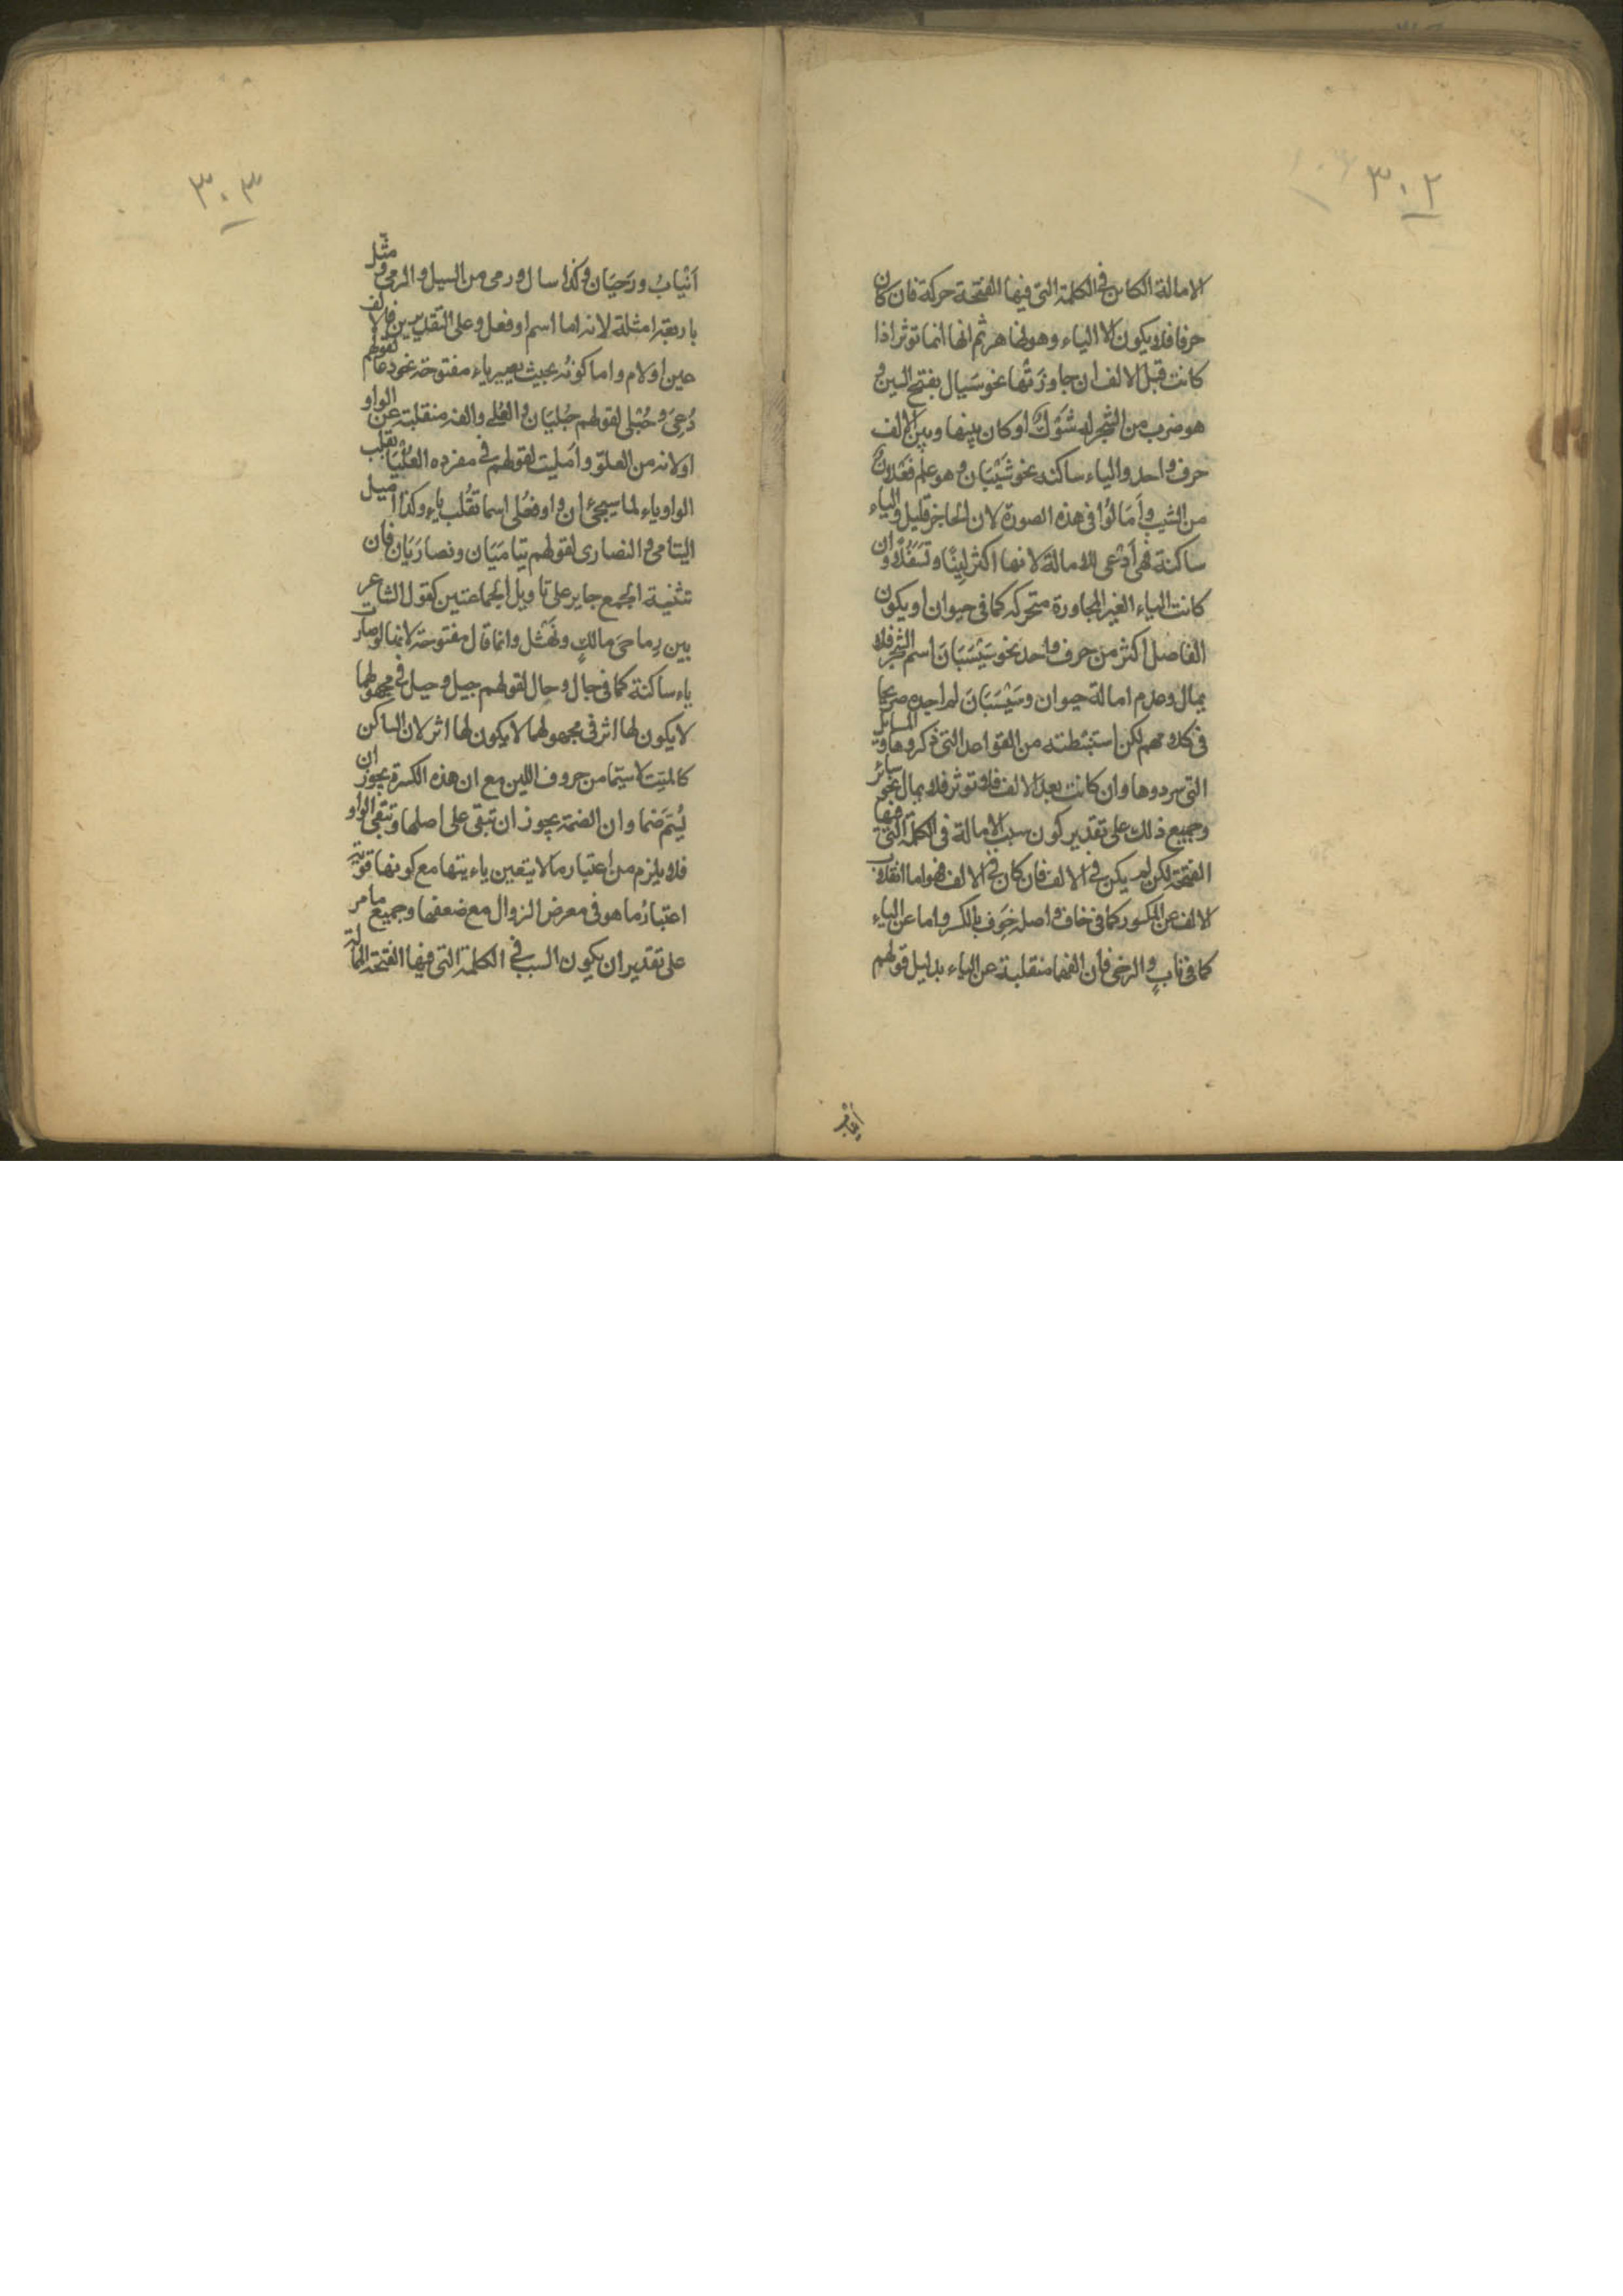 ٣٠٢
الامالة الكائن فى الكلمة التى فيها الفتحة حركة فان كان
حرفا فلا يكون الا الياء وهو ظاهر ثم انها انما تؤثر اذا
كانت قبل الالف ان جاوزَتْها نحو سَيال بفتح السين و
هو ضرب من الشجر له شَوْكٌ او كان بينها وبين الالف
حرف واحد والياء ساكنه نحو شَيْبَان وهو علم فَعْلانٌ
من الشيب وأَمَالُوا فى هذه الصورة لان الحاجز قليل والياء
ساكنة فهى أَدْعى للامالة لانها اكثر لِينًا وتَسَفُّلًا وان
كانت الياء الغير المجاورة متحركه كما فى حيوان او يكون
الفاصل اكثر من حرف واحد نحو سَيْسَبَانَ اسم الشجر فلا
يمال وعدم امالة حيوان وسَيْسَبَانَ لم اجده صريحا
فى كلامهم لكن استنبطته من القواعد التى ذكروها و المسائل
التى سردوها وان كانت بعد الالف فلا تؤثر فلا يمال نحو سائر
وجميع ذلك على تقدير كون سبب الامالة فى الكلمة التى فيها
الفتحة لكن لم يكن فى الالف فان كان فى الالف فهو اما انقلاب
الالف عن المكسور كما فى خاف واصله خَوِف بالكسر واما عن الياء
كما فى نابٍ والرحى فان الفهما منقلبة عن الياء بدليل قولهم
٣٠٣
اَنْيابٌ ورَحَيَان وكذا سال ورمى من السيل والرمى و مثّل
باربعة امثلة لانه اما اسم او فعل وعلى التقديرين فالالف
عين او لام واما كونُه بحيث يصير ياء مفتوحة نحو دعا لقولهم
دُعِىَ وحُبْلى لقولهم حُبْلَيَان والعُلى والفه منقلبة عن الواو
لانه من العلوّ وأُميلت لقولهم فى مفرده العُلْيا تقلب
الواو ياء لما سيجئ ان واو فُعْلى اسما تقُلب ياء وكذا اميل
اليتامى والنصارى لقولهم يتامَيَان ونصارَيَان فان
تثنية الجمع جايز على تاويل الجماعتين كقول الشاعر
بين رِماحَى مالكٍ ونَهْشَل وانما قال مفتوحة لانها لو صارت
ياء ساكنة كما فى جال وحال لقولهم جيل وحيل فى مجهولهما
لا يكون لها اثر فى مجهولهما لا يكون لها اثر لان الساكن
كالميّت لا سيّما من حروف اللين مع ان هذه الكسرة يجوز ان
يُشَمّ ضما وان الضمة يجوز ان تبقى على اصلها وتبقى الواو
فلا يلزم من اعتبار ما لا يتعين ياءيتها مع كونها قويّة
اعتبارُ ما هو فى معرض الزوال مع ضعفها وجميع ما مر
على تقدير ان يكون السبب فى الكلمة التى فيها الفتحة الممالة